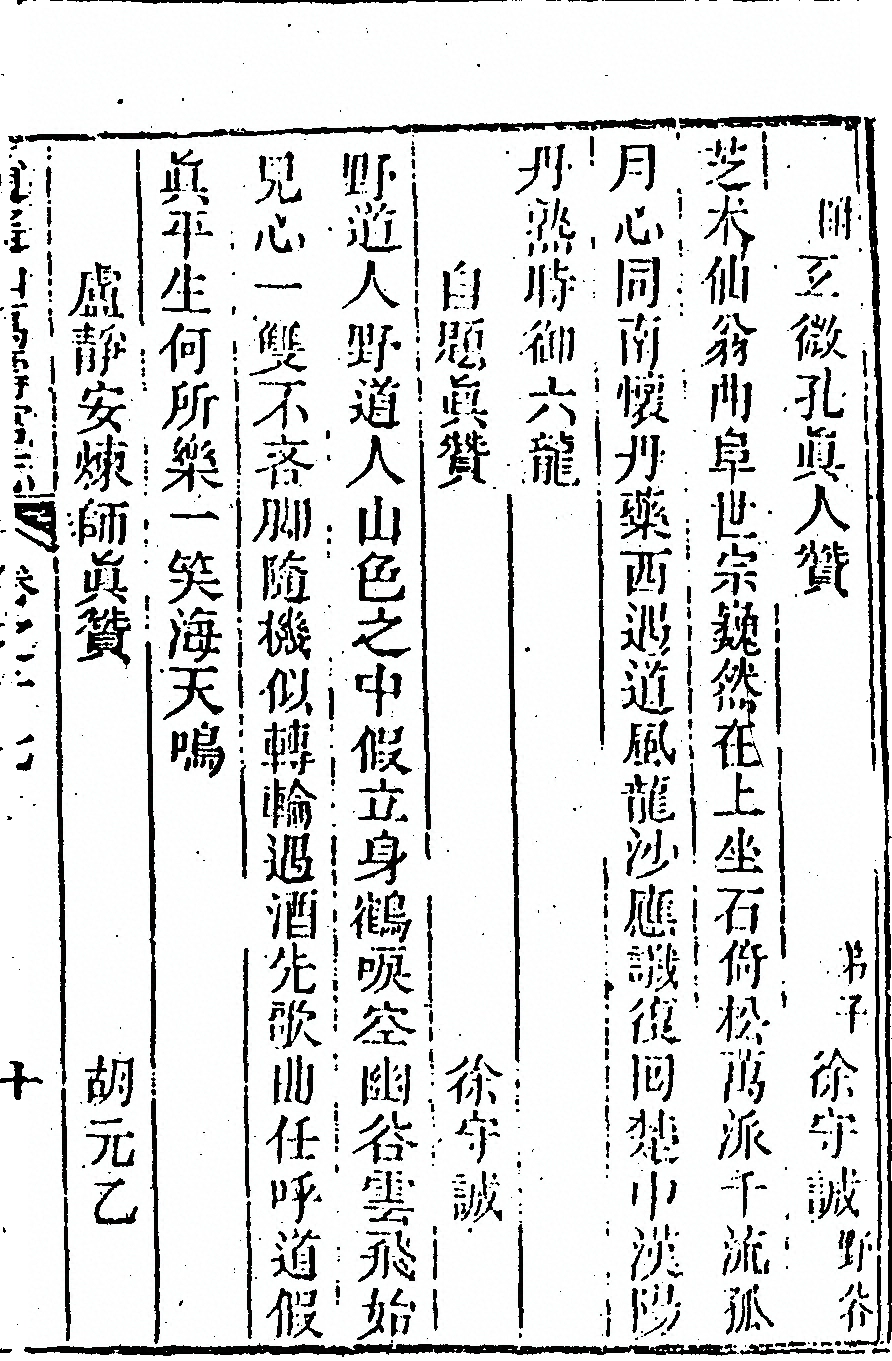 明玄微孔眞人贊 弟子徐守誠野谷
芝朮仙翁曲阜世宗巍然在上坐石倚松萬派千流孤
月心同南懷丹藥西遇道風龍沙應讖復回楚中漢陽
丹熟時御六龍
自題眞贊 徐守誠
野道人野道人山色之中假立身鶴唳空幽谷雲飛始
見心一雙不吝脚隨機似轉輪遇酒先歌曲任呼道假
眞平生何所樂一笑海天鳴
盧靜安煉師眞贊 胡元乙
十